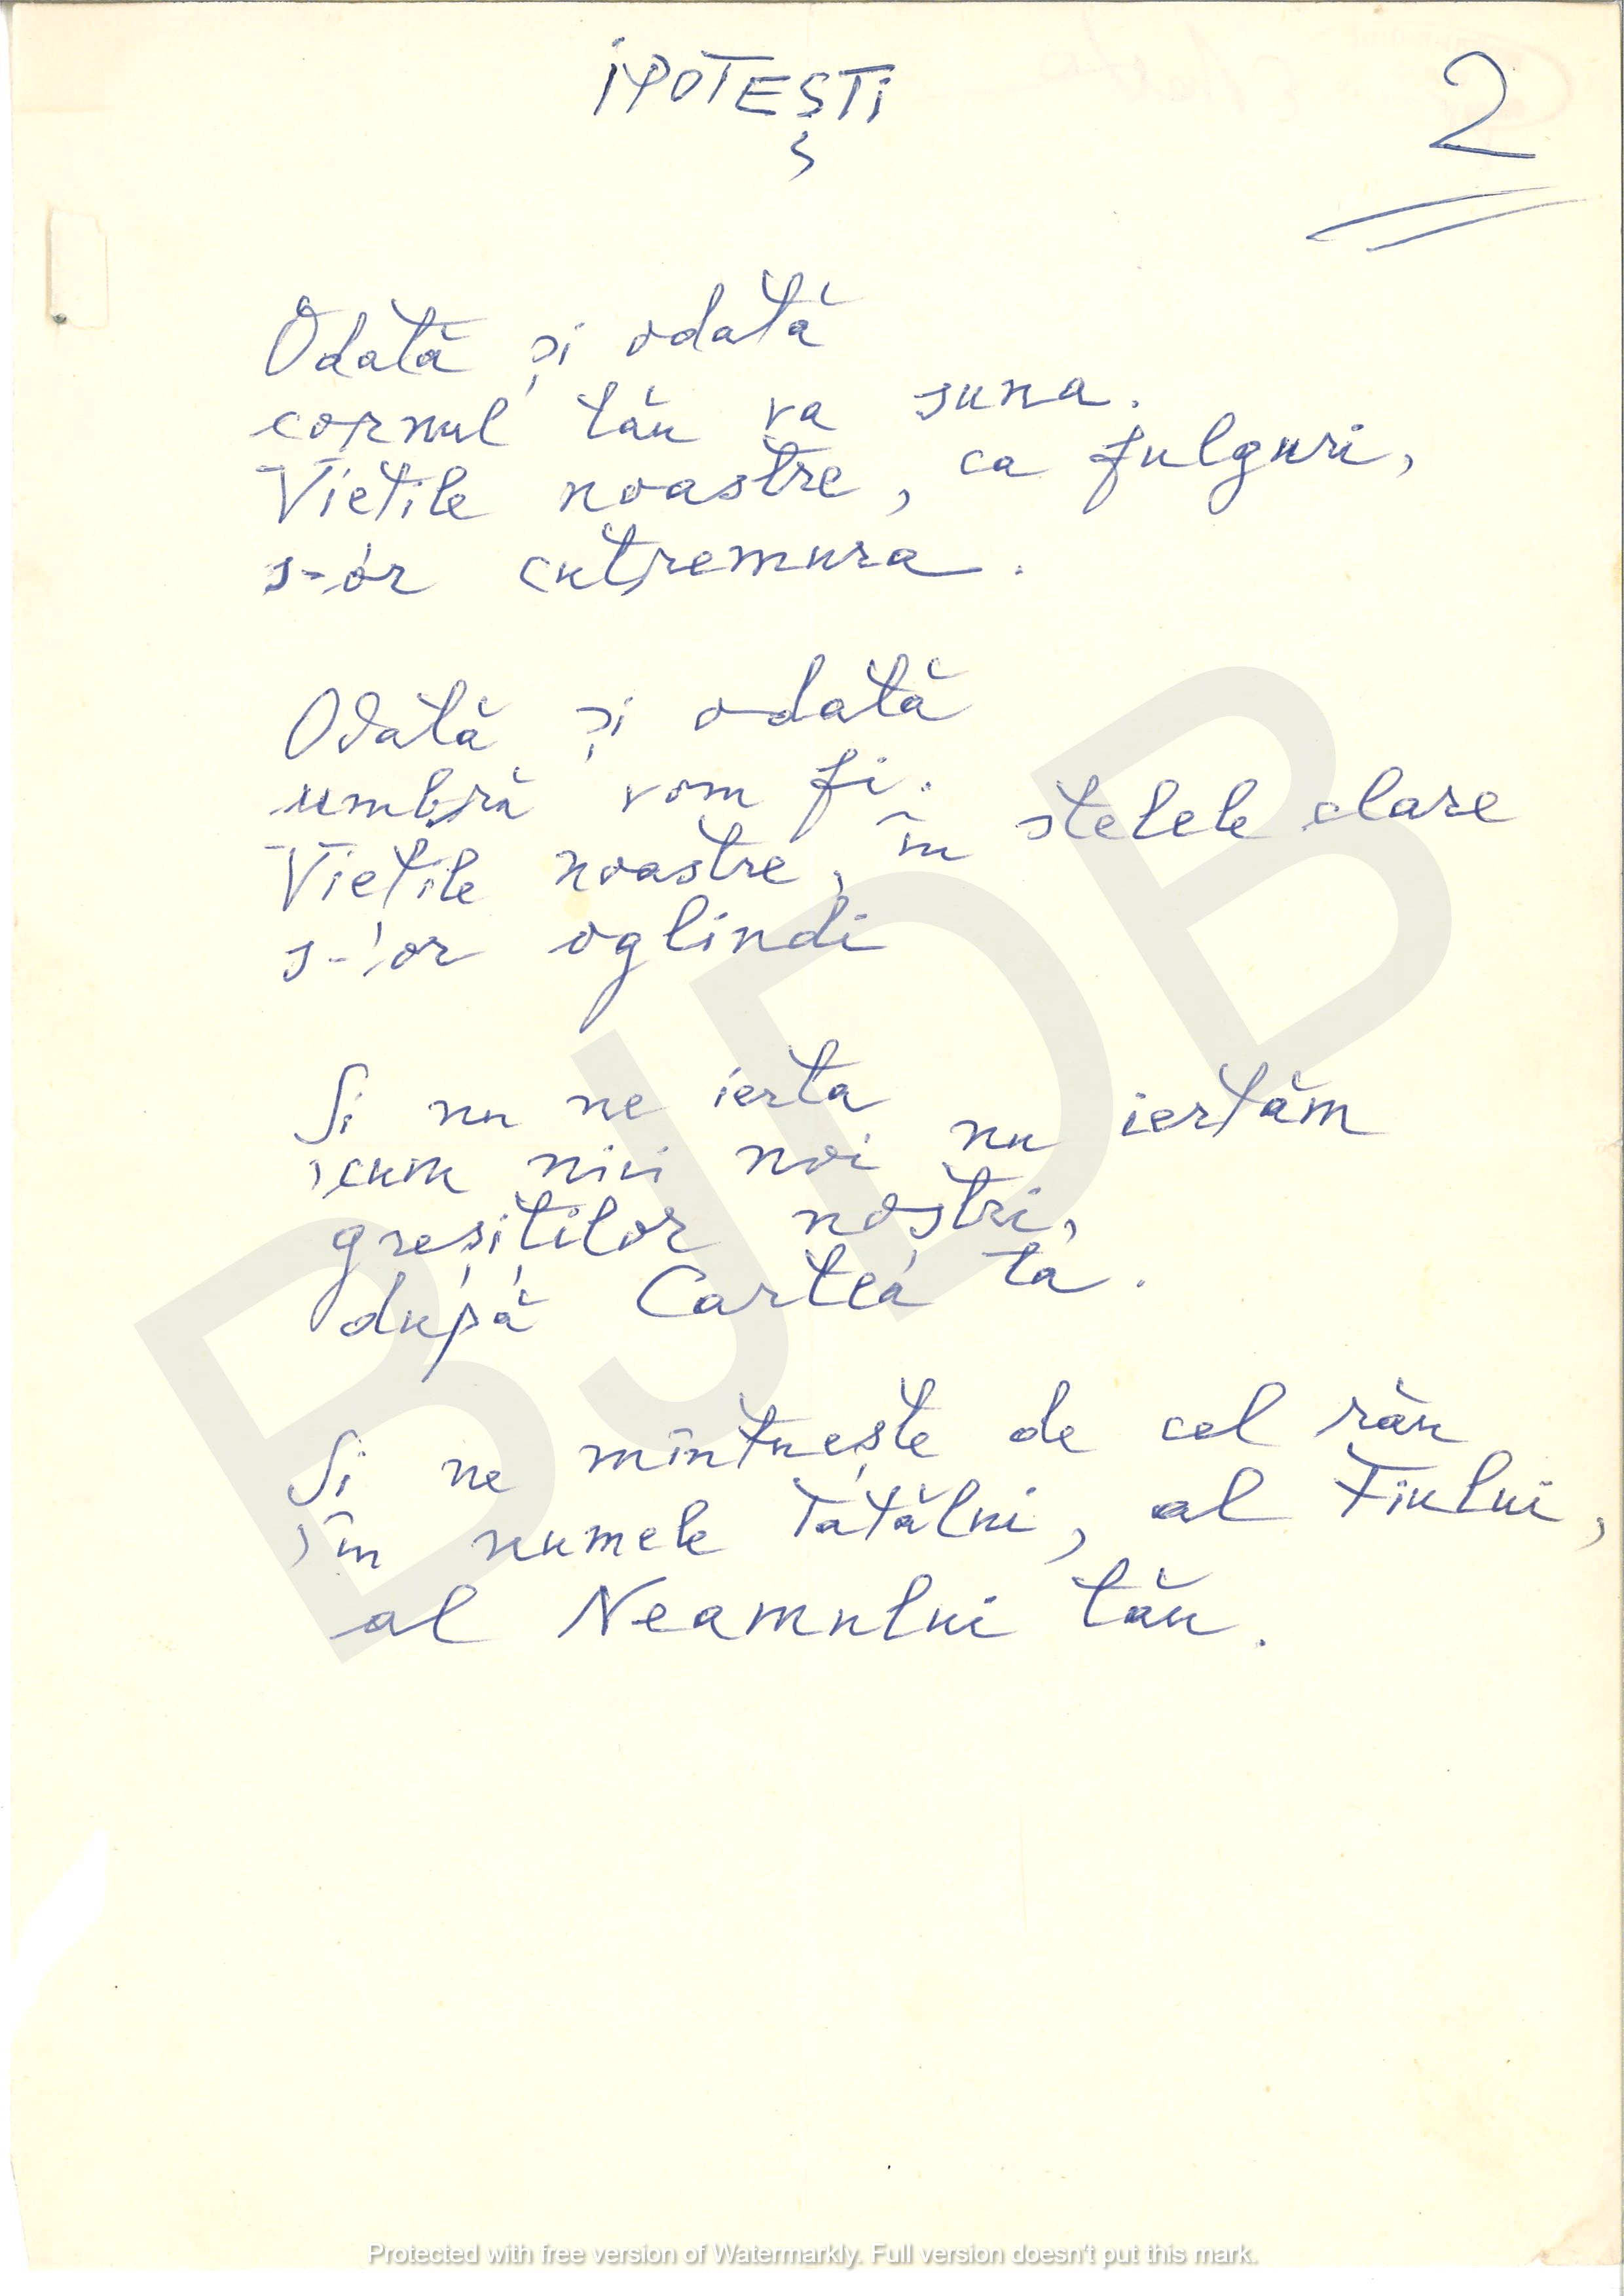 IPOTEȘTI
2
Odată și odată
cornul tău va suna.
Viețile noastre, ca fulguri,
s-or cutremura.
Odată și odată
umbră vom fi.
Viețile noastre, în stelele clare
s-or oglindi
Și nu ne ierta
cum nici noi nu iertăm
greșiților noștri,
după Cartea ta.
Și ne mîntuește de cel rău
în numele Tatălui, al Fiului,
al Neamului tău.
BJDB
Protected with free version of Watermarkly. Full version doesn't put this mark.